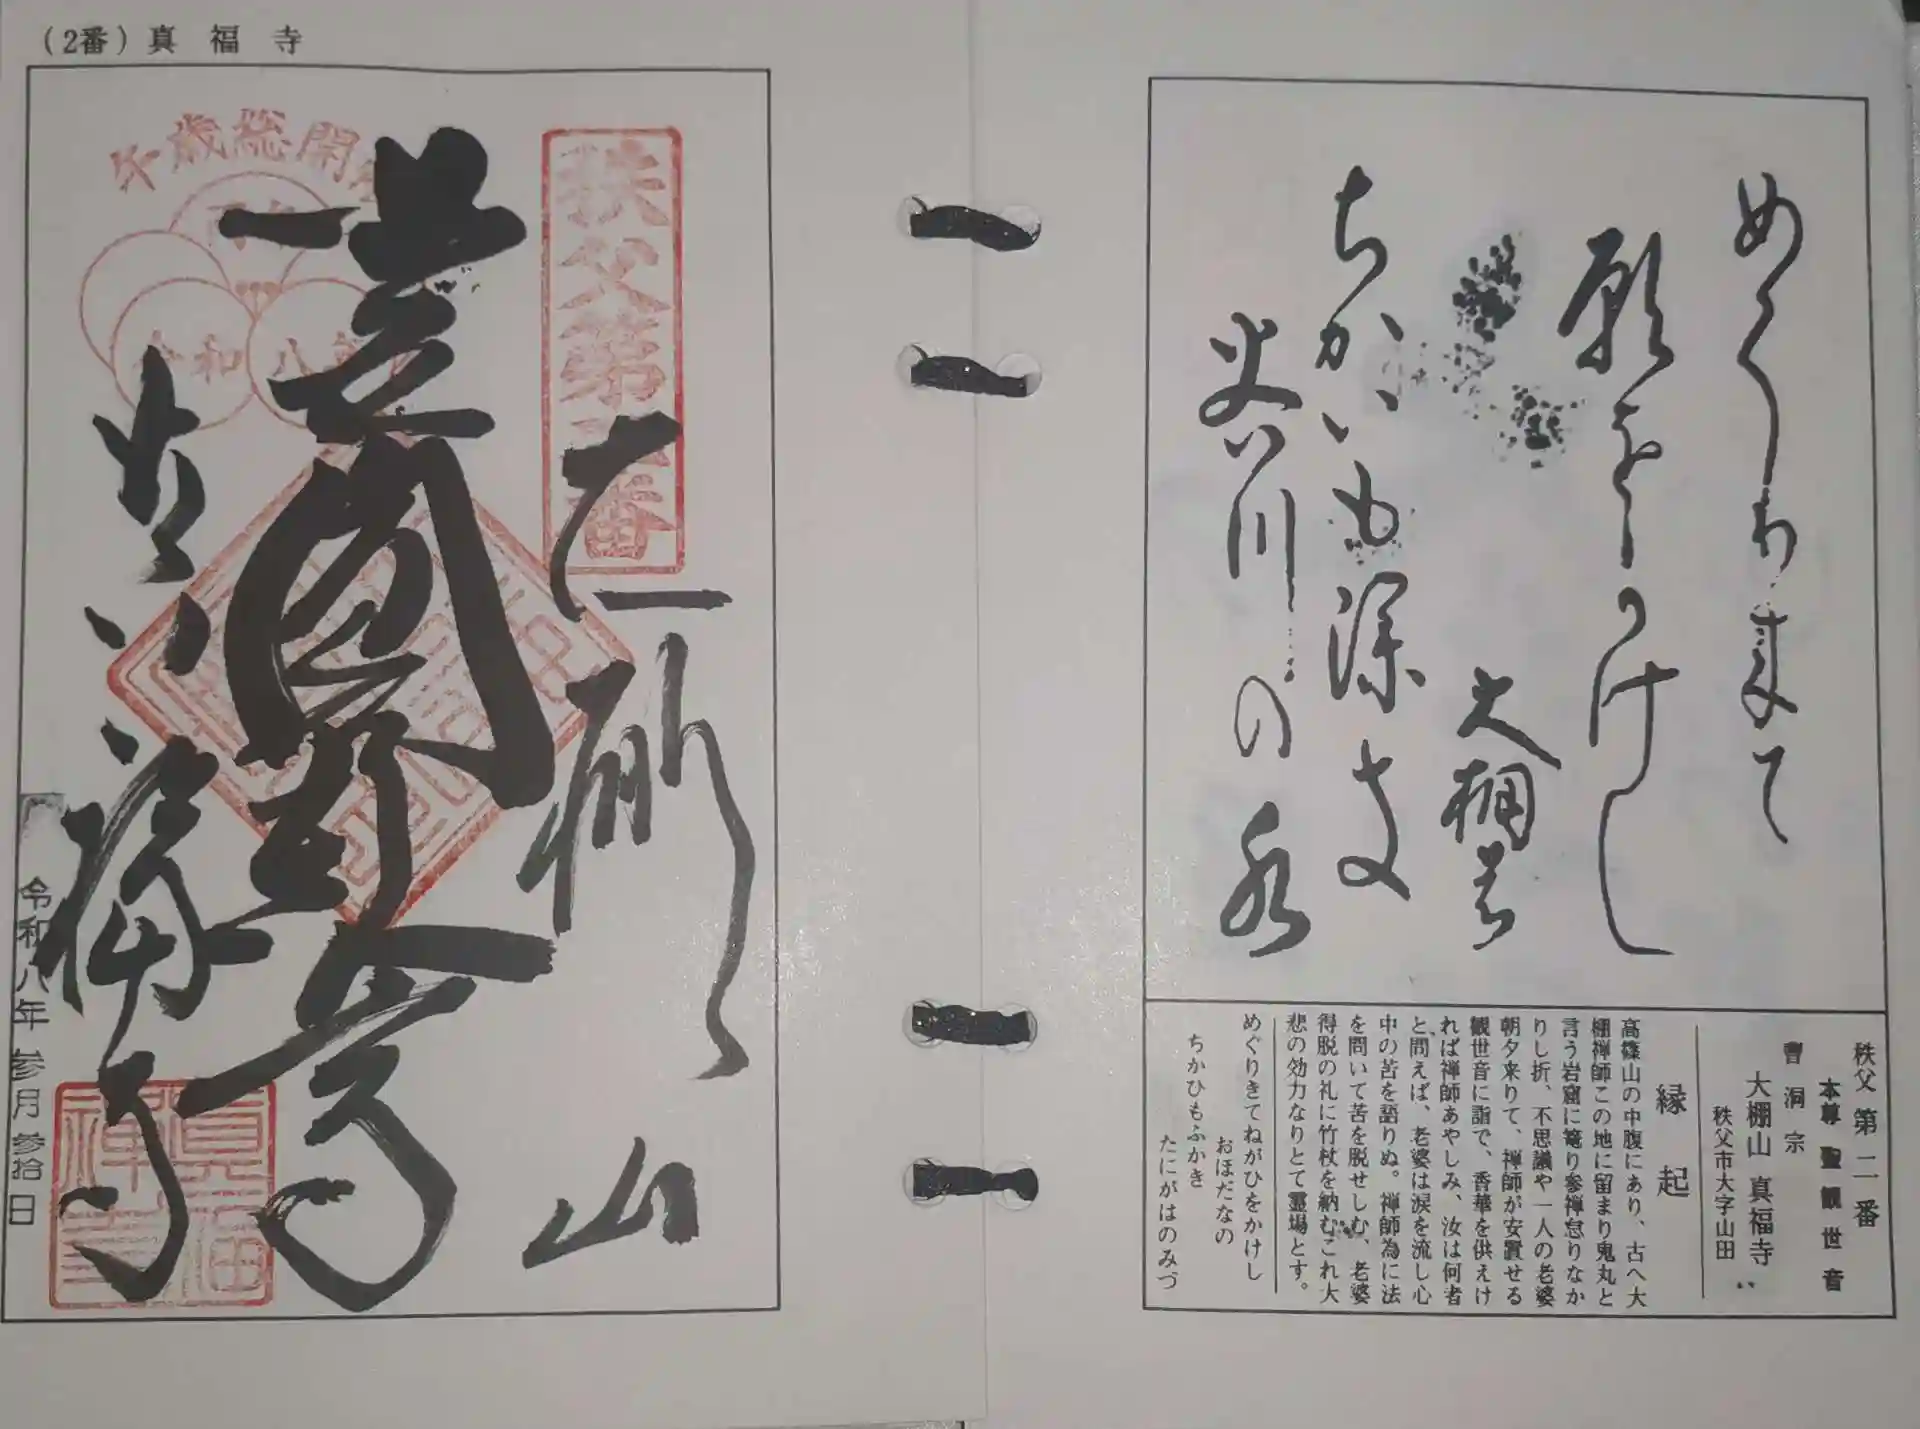 (2番) 真福寺
午歳総開
令和八年
秩父第二番
大棚山
真福寺
令和八年参月参拾日
めくり来て
願をかけし
大棚の
ちかいも深き
谷川の水
秩父第二番
本尊 聖観世音
曹洞宗
大棚山 真福寺
秩父市大字山田
縁起
高篠山の中腹にあり、古へ大
棚禅師この地に留まり鬼丸と
言う岩窟に篭り参禅怠りなか
りし折、不思議や一人の老婆
朝夕来りて、禅師が安置せる
観世音に詣で、香華を供えけ
れば禅師あやしみ、汝は何者
と問えば、老婆は涙を流し心
中の苦を語りぬ。禅師為に法
を問いて苦を脱せしむ、老婆
得脱の礼に竹杖を納むこれ大
悲の効力なりとて霊場とす。
めぐりきてねがひをかけし
おほだなの
ちかひもふかき
たにがはのみづ